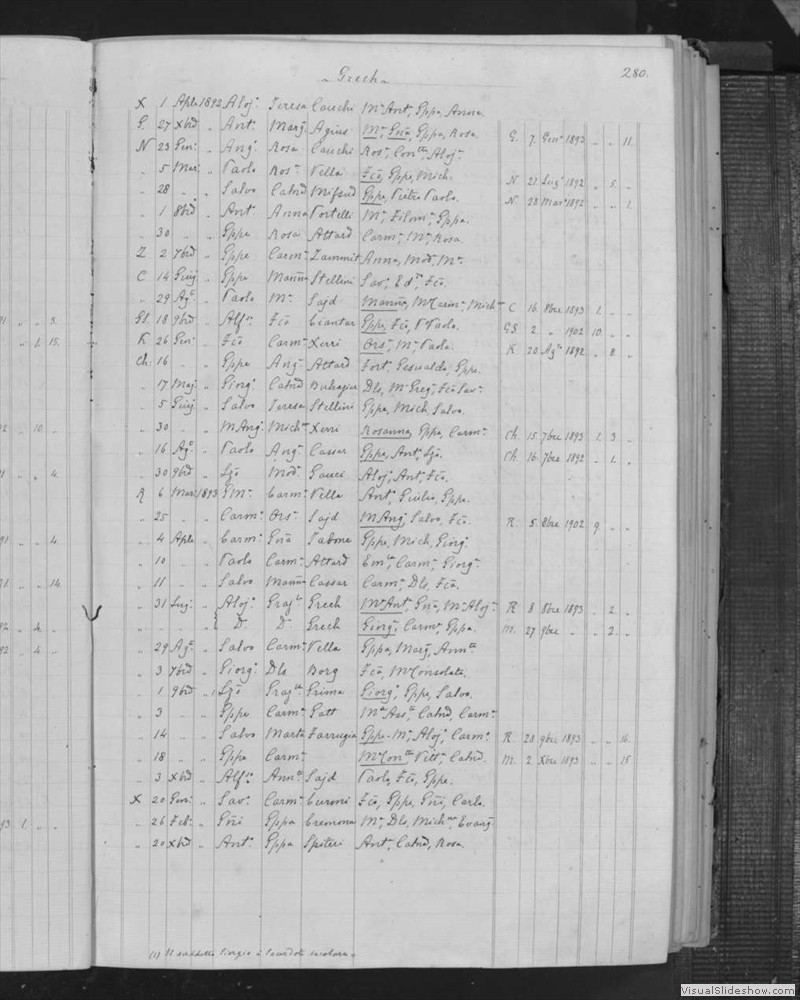 Grech
280.
X 1 Aple 1892 Aloj. Teresa Cauchi Ma Ant, Gppa, Anna
G. 27 Xbre " Ant. Marg. Agius Ma Gna, Gppa, Rosa. G. 7. Genn 1893 " " 11
N 23 Gen. " Ang. Rosa Cauchi Rosa, Conta, Aloj.
" 5 Mar. " Paolo Rosa Vella Fco, Gppe, Mich. N. 21. Lug. 1892 " 5. "
" 28 " " Salvo Catnd Mifsud Gppe, Pietro Paolo. N. 28 Mar. 1892 " " 1.
" 1 8bre " Ant. Anna Portelli Ma, Filoma, Gppa.
" 30 " " Gppe Rosa Attard Carma, Ma, Rosa.
Z 2 7bre " Gppe Carma Zammit Anna, Moda, Ma.
C 14 Giug " Gppe Marnna Stellini Sav., Eda, Fca.
" 29 Ag. " Paolo Ma Sajd Marnna, Ma Carma, Mich. C 16. 8bre 1893 1. " "
Gl. 18 9bre " Alf. Fca Ciantar Gppa, Fca, P Paolo. GS 2 " 1902 10. "
K 26 Gen. " Fco Carma Xerri Ors., Ma, Paola. K. 20. Ag. 1892 " 8. "
Ch. 16 " " Gppe Ang. Attard Fort., Gesualda, Gppa.
" 17 Mag. " Giorg. Catnd Buhagiar Dls, Ma Greg., Fco Sav.
" 5 Giug " Salvo Teresa Stellini Gppa, Mich, Salvo.
" 30 " " M Ang. Micha Xerri Rosanna, Gppa, Carma. Ch. 15. 7bre 1893 1. 3 "
" 16 Ag. " Paolo Ang. Cassar Gppa, Ant., Lzo. Ch. 16. 7bre 1892 " 1. "
" 30 9bre " Lzo Moda Gauci Aloj, Ant, Fco.
R 6 Mar. 1893 G Ma Carma Vella Ant., Giulio, Gppe.
" 25 " " Carmo Orsa Sajd M Ang, Salvo, Fco. R. 5. 8bre 1902 9. " "
" 4 Aple " Carmo Gna Tabone Gppe, Mich, Giorg.
" 10 " " Paolo Carma Attard Emla, Carma, Giorga.
" 11 " " Salvo Marnna Cassar Carma, Dls, Fca.
" 31 Lug. " Aloj. Grazla Grech Ma Ant, Gna, Ma Aloj. R 8 8bre 1893 " 2. "
" " " D. D. Grech Giorg., Carma, Gppa. M. 27 9bre " " 2. "
" 29 Ag. " Salvo Carma Vella Gppa, Marg., Annta
" 3 7bre " Giorg. Dls Borg Fca, Ma Consolata.
" 1 9bre " Lzo Grazla Grima Giorg., Gppe, Salvo.
" 3 " " Gppe Carma Gatt Ma Assta, Catnd, Carma
" 14 " " Salvo Marta Farrugia Gppe Ma, Aloj., Carma. R. 28. 9bre 1893 " " 16.
" 18 " " Gppe Carma Ma Conta Vitta, Catnd. M. 2. Xbre 1893 " " 15
" 3 Xbre " Alf. Annta Sajd Paolo, Fco, Gppe.
X 20 Gen. " Sav. Carma Curmi Fco, Gppe, Gni, Carlo.
" 26 Feb. " Gni Gppa Cremona Ma, Dls, Micha, Evang.
" 20 Xbre " Ant. Gppa Spiteri Ant, Catnd, Rosa.
(1) Il suddetto Giorgio
VisualSlideshow.com